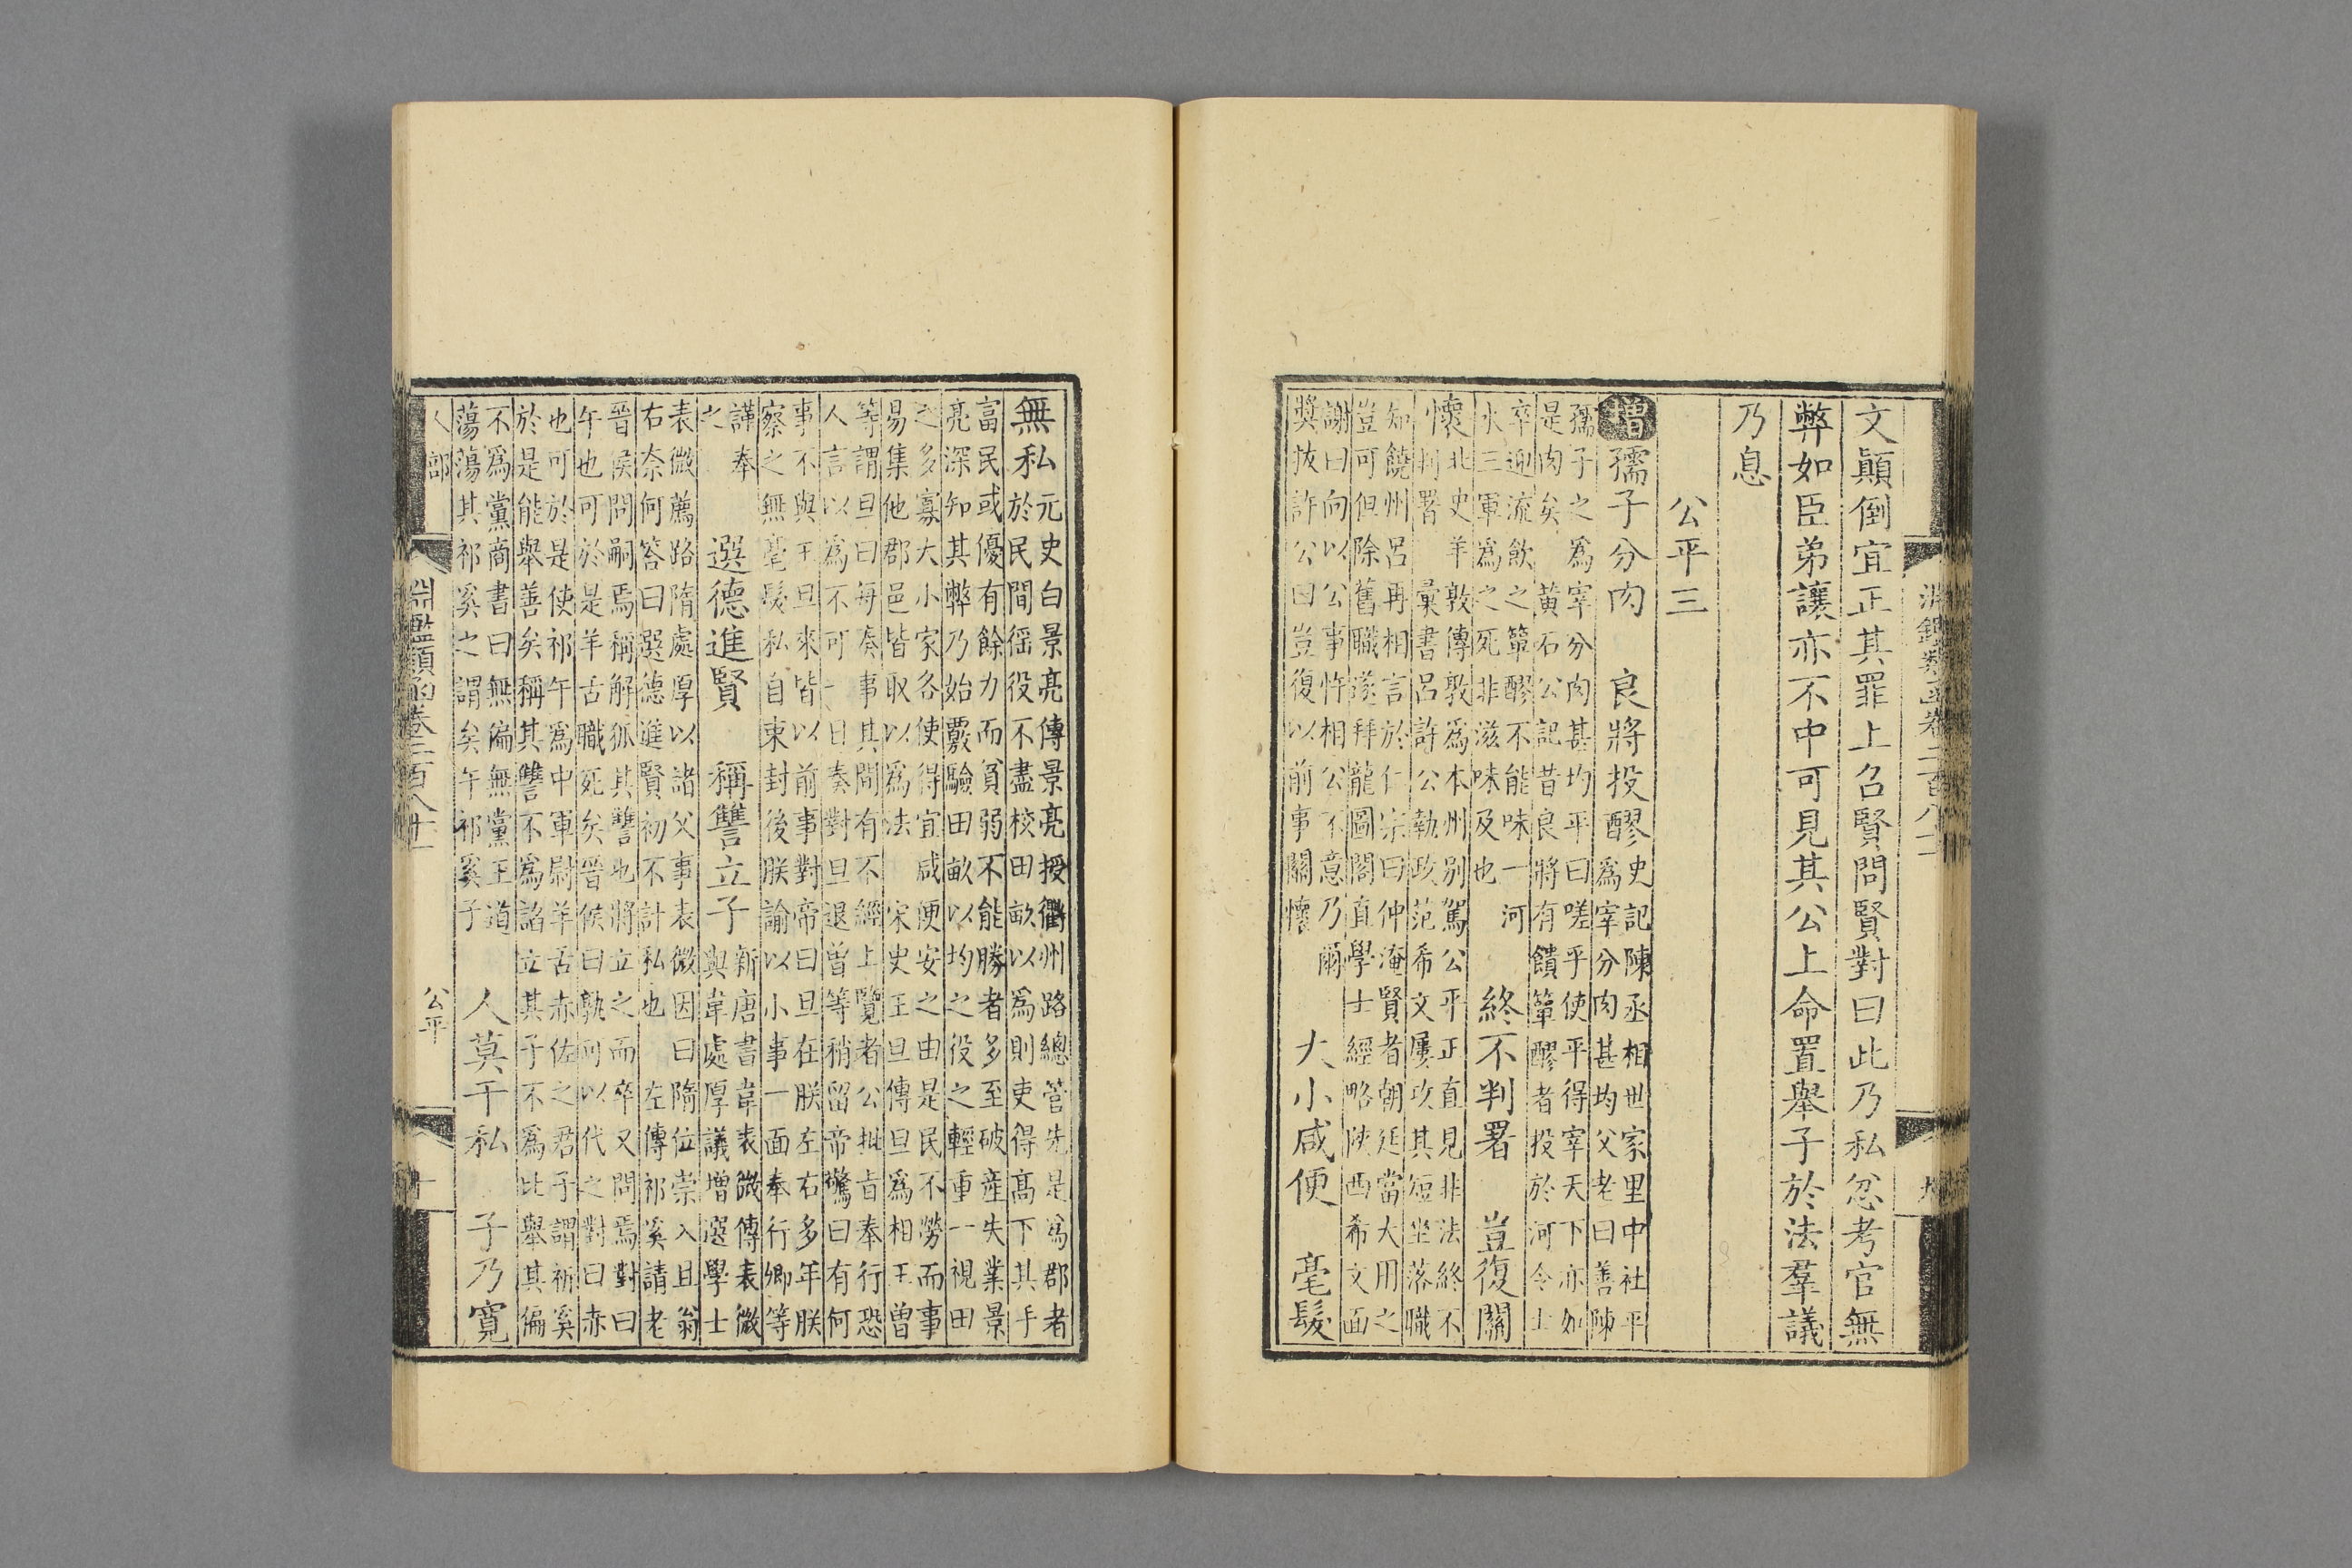 淵鑑類函卷二百八十一
文顛倒宜正其罪上召賢問賢對曰此乃私忿考官無
弊如臣弟讓亦不中可見其公上命置舉子於法羣議
乃息
公平三
增孺子分肉 良將投醪
史記陳丞相世家里中社平
爲宰分肉甚均父老曰善陳
孺子之爲宰分肉甚均平曰嗟乎使平得宰天下亦如
是肉矣 黃石公記昔良將有饋簞醪者投於河令士
卒迎流飲之簞醪不能味一河
水三軍爲之死非滋味及也
終不判署 豈復關
懷
北史羊敦傳敦爲本州別駕公平正直見非法終不
判署 彙書呂許公執政范希文屢攻其短坐落職
知饒州呂再相言於仁宗曰仲淹賢者朝廷當大用之
豈可但除舊職遂拜龍圖閣直學士經略陝西希文面
謝曰向以公事忤相公不意乃爾
奬拔許公曰豈復以前事關懷
大小咸便 毫髮
無私
元史白景亮傳景亮授衢州路總管先是爲郡者
於民間徭役不盡校田畝以爲則吏得高下其手
富民或優有餘力而貧弱不能勝者多至破產失業景
亮深知其弊乃始覈驗田畝以均之役之輕重一視田
之多寡大小家各使得宜咸便安之由是民不勞而事
易集他郡邑皆取以爲法 宋史王旦傳旦爲相王曾
等謂旦曰每奏事其間有不經上覽者公批旨奉行恐
人言以爲不可一日奏對旦退曾等稍留帝驚曰有何
事不與王旦來皆以前事對帝曰旦在朕左右多年朕
察之無毫髮私自東封後朕諭以小事一面奉行卿等
謹奉
之
選德進賢 稱讐立子
新唐書韋表微傳表微
與韋處厚議增選學士
表微薦路隋處厚以諸父事表微因曰隋位崇入且翁
右奈何答曰選德進賢初不計私也 左傳祁奚請老
晉侯問嗣焉稱解狐其讐也將立之而卒又問焉對曰
午也可於是羊舌職死矣晉侯曰孰可以代之對曰赤
也可於是使祁午爲中軍尉羊舌赤佐之君子謂祈奚
於是能舉善矣稱其讐不爲諂立其子不爲比舉其偏
不爲黨商書曰無偏無黨王道
蕩蕩其祁奚之謂矣午祁奚子
人莫干私 子乃寬
人部
淵鑑類函卷二百八十一
公平